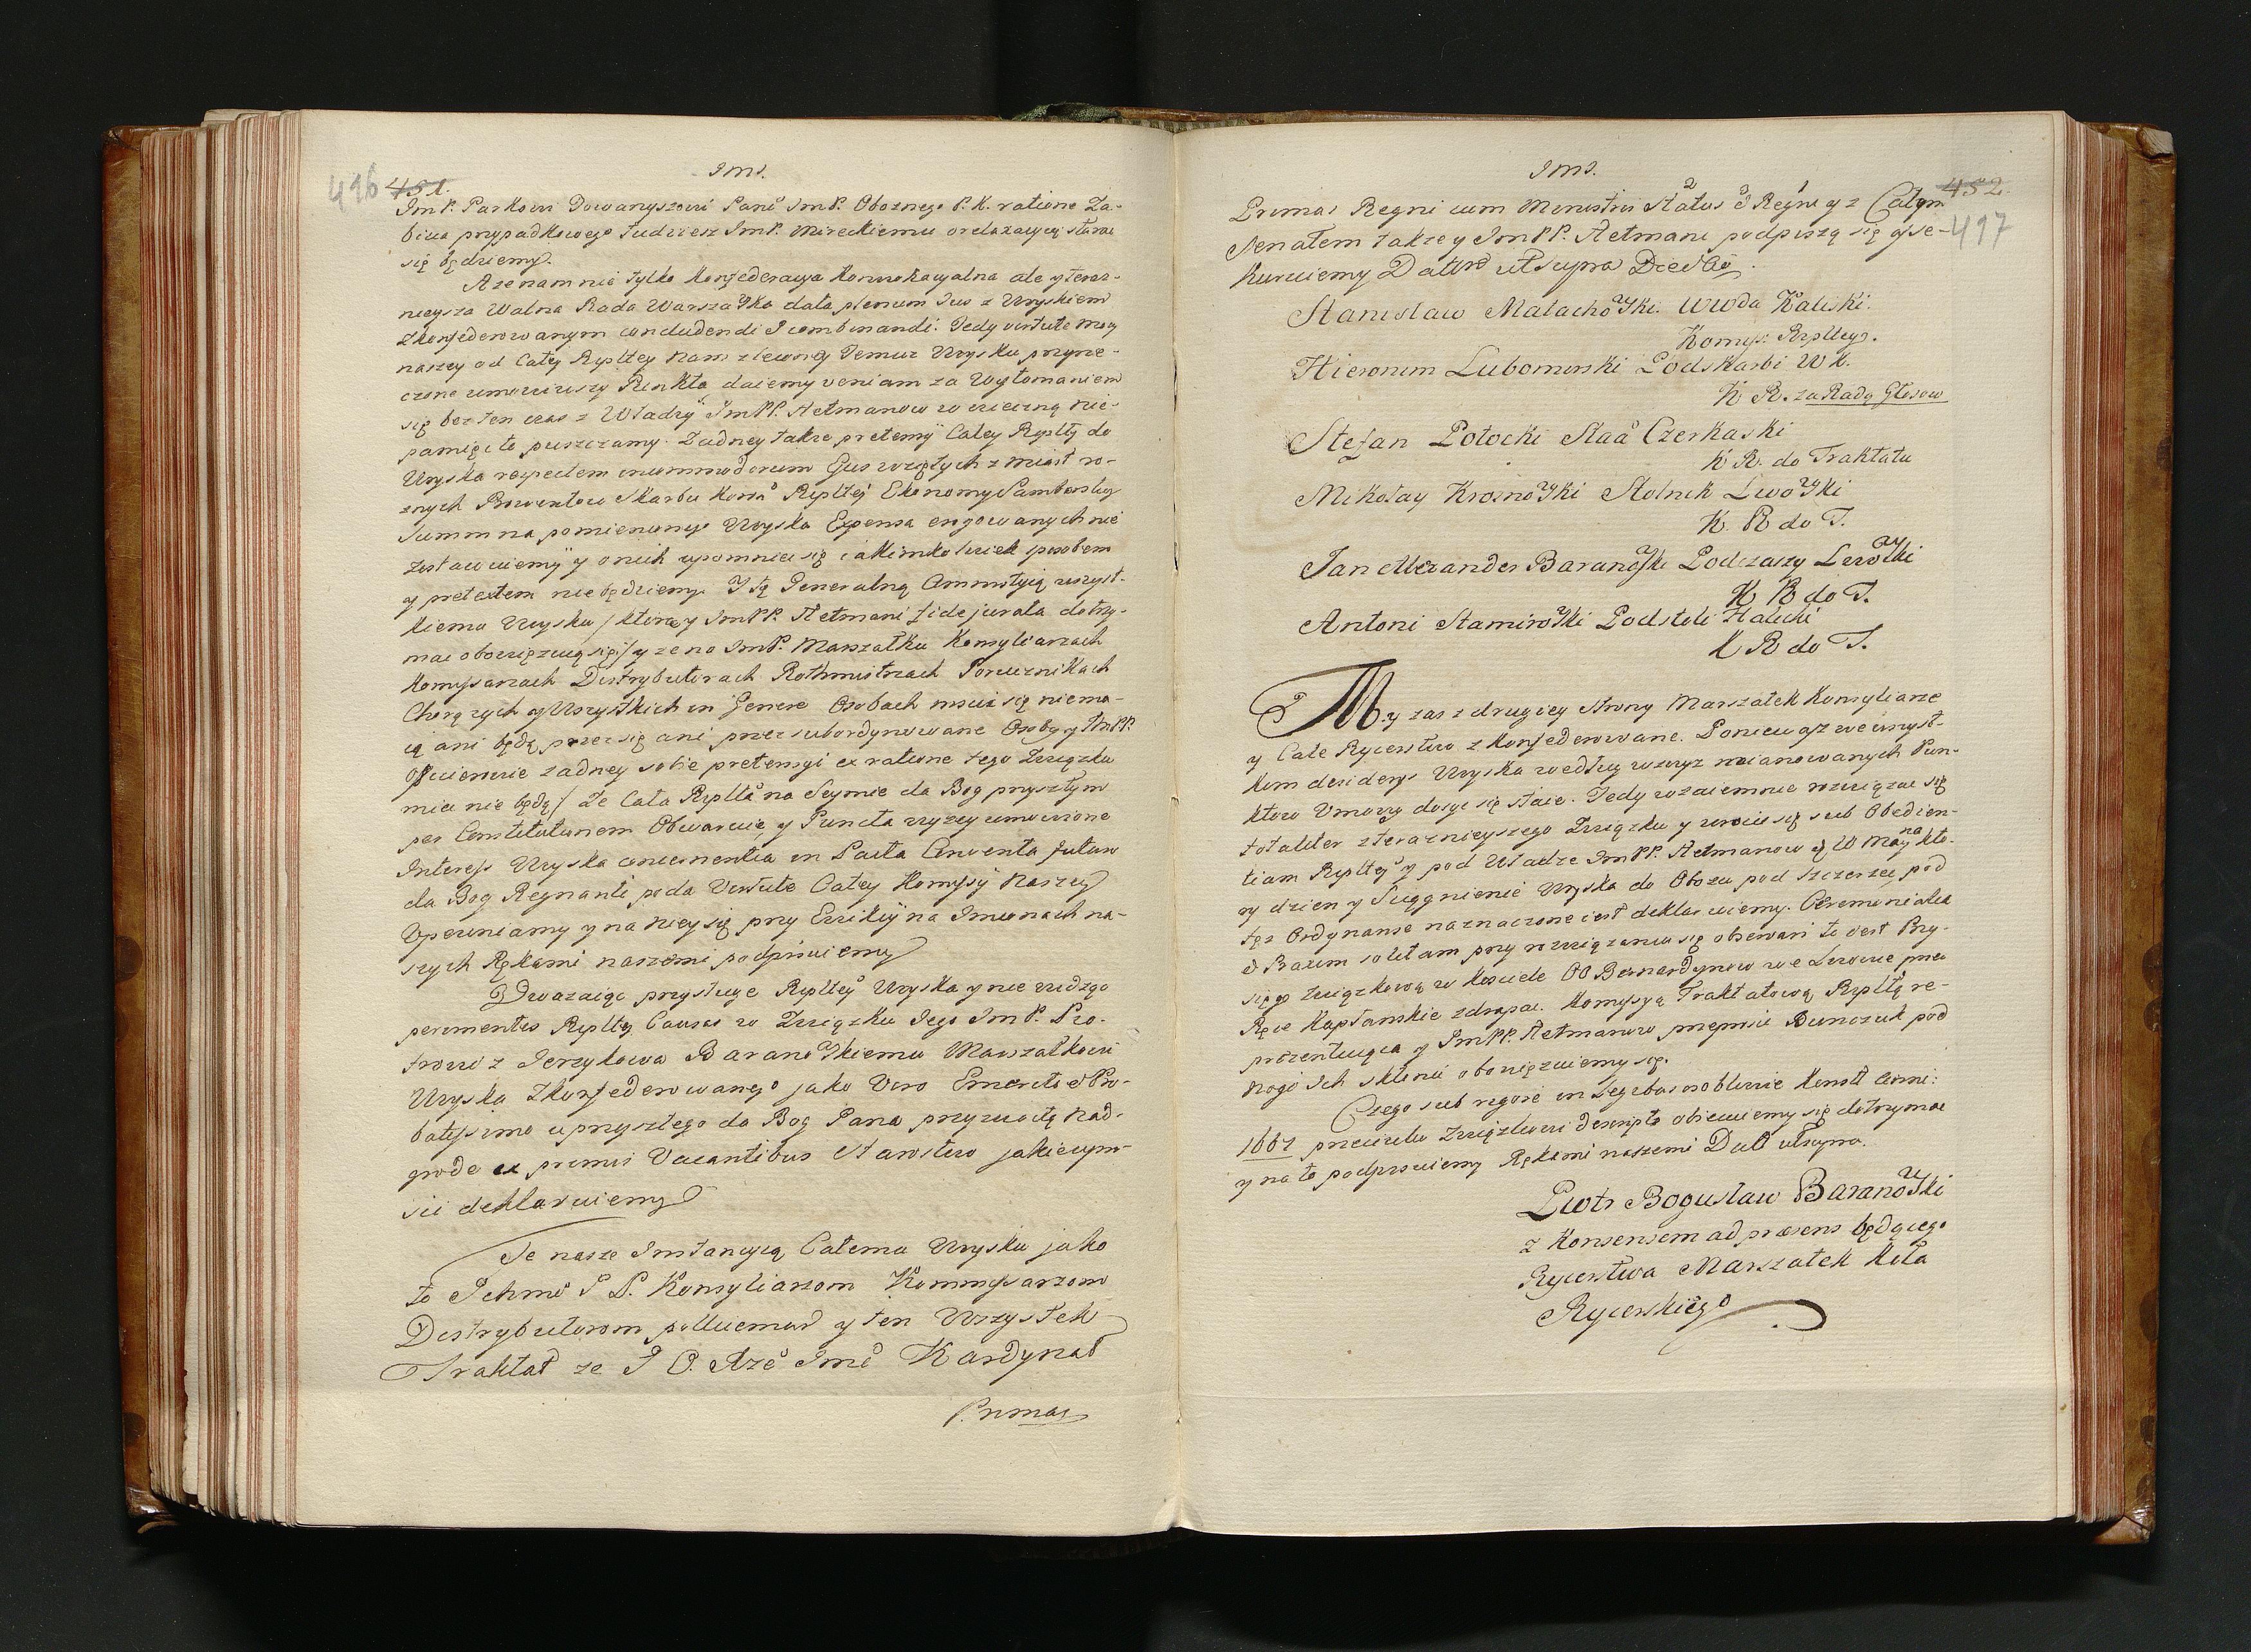 Im̃s.
496 451.
ImP. Parkowi Dowanyszowi Panc̃ ImP. Oboznego P. K. ratione Za-
bicia przypadkowego tudziesz ImP. Mireckiemu o relaxacyią starac
się będziemy.
A ze nam nie tylko Konfederacya Konwokacyalna ale y teraz-
nieysza Walna Rada Warszaska data plenum Ius z Woyskiem
Zkonfederowanym concludendi & combinandi. Tedy virtute mocy
naszey od Całey Rzpltey nam zleconey Temuz Woysku przyrze-
czone umowiwszy Punkta daiemy veniam za Wyłomaniem
się bez ten czas z Władzy ImPP. Hetmanow w wieczną nie-
pamięc to puszczamy. Zadney takze pretensyi Całey Rzpltey do
Woyska respectem incommodorum Ejus wziętych z miast ro-
znych Prowentow Skarbu Koroñ Rzpltey Ekonomy Samborskiey
Summ na pomienionego Woyska Expensa erogowanych nie
zostawuiemy y onich upomniec się iakimkolwiek sposobem
y pretextem nie będziemy. I tę Generalną Amnistyią wszyst-
kiemu Woysku / którey ImPP. Hetmani fide jurata dotrzy-
mac obowięzuią się / y ze na ImP. Marszałku Konsyliarzach
Komysarzach Dystrybutorach Rothmistrzach Porucznikach
Chorązych y Wszystkich in Genere Osobach mscic się niema-
ią ani będą przez się ani przez subordynowane Osoby y ImPP.
Officierowie zadney sobie pretensyi ex ratione tego Związku
miec nie będą / Ze Cała Rzplta na Seymie da Bog przyszłym
per Constitutionem Obwaruie y Puncta wyzey umowione
Interess Woyska concernentia in Pacta Conventa futuro
da Bog Regnanti poda Virtute Całey Komysyi Naszey
Upewniamy y na niey się przy Exsikcyi na Imionach na-
szych Rękami naszemi podpisuiemy
Uwazaiąc przysługę Rzpltey Woyska y nie widząc
perimentes Rzpltey Causas w Związku Iego ImP. Pio-
trowi z Ierzykowa Baranoskiemu Marszałkowi
Woyska Zkonfederowanego jako Viro Emerito & Pro-
batissimo u przyszłego da Bog Pana przyzwoitą Nad-
grode ex primis Vacantibus Starostwo jakie upro-
sic deklaruiemy
Te nasze Instancyią Całemu Woysku jako
to Ichmc̃ P P. Konsyliarzom Kommyssarzom
Dystrybutorom pollicemur y ten Wszystek
Traktat ze J O. Xze Imc̃ Kardynał
Primas
Im̃s.
452.
497
Primas Regni cum Ministris Status & Regni y z Całym
Senatem takze y ImPP. Hetmani podpiszą się y sse-
kuruiemy Datum ut supra Die et Aõ.
Stanisław Małachoski. Wwoda Kaliski.
Komys: Rzpltey.
Hieronim Lubomirski Podskarbi W K.
K R. za Radą Głosow
Stefan Potocki Staã Czerkaski
K R. do Traktatu
Mikołay Krosnoski Stolnik Lwoski
K. R do T.
Jan Alexander Baranoski Podczaszy Lwoski
K R do T.
Antoni Stamiroski Podstoli Halicki
K R do T.
My zas z drugiey strony Marszałek Konsyliarze
y Całe Rycerstwo z Konfederowane. Poniewasz we wszyst-
kim desiderys Woyska według wzwyz mianowanych Pun-
ktow Umowy dosyc się stało. Tedy wzaiemnie rozwiązac się
totaliter z teraznieyszego Związku y wrocic się sub Obedien-
tiam Rzpltey y pod Władze ImPP. Hetmanow y W May na kto-
ry dzien y Sciągnienie Woyska do Obozu pod Szczerzec pod
tęz Ordynanse naznaczone iest deklaruiemy. Ceremonialia
& Praxim solitam przy rozwiązaniu się observari to iest Przy-
sięgę Związkową w Kosciele OO Bernardynow we Lwowie przez
Ręce Kapłanskie zdrapac. Komysyą Traktatową Rzpltą re-
prezentuiąca y ImPP. Hetmanow przeprosic Bunczuk pod
Nogi Ich skłonic obowięzuiemy się.
Czego sub rigore in Legibus osobliwie Konstt Anni:
1667 przeciwko Związkowi descripto obiecuiemy się dotrzymac
y na to podpisuiemy Rękami naszemi Datt ut supra.
Piotr Bogusław Baranoski
z Konsensem ad præsens będącego
Rycerstwa Marszałek Koła
Rycerskiego